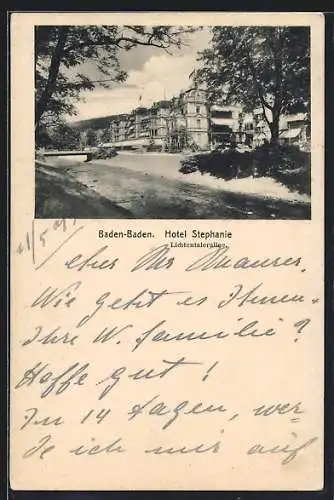 Baden-Baden. Hotel Stephanie
Lichtentalerallee.
Mr Maurer,
Wie geht es Ihnen-
Ihre W. familie?
Hoffe gut!
In 14 Tagen, wer-
de ich mir auf